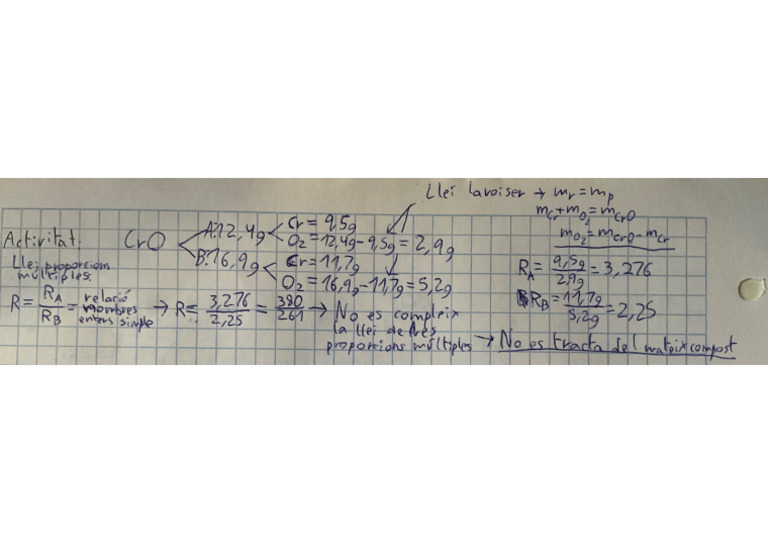 Llei lavoiser → mr = mp
mCr + mO₂ = mCrO
mO₂ = mCrO - mCr
Activitat: CrO
A: 12,4g
Cr = 9,5g
O₂ = 12,4g - 9,5g = 2,9g
B: 16,9g
Cr = 11,7g
O₂ = 16,9g - 11,7g = 5,2g
RA = 9,5g / 2,9g = 3,276
RB = 11,7g / 5,2g = 2,25
Llei proporcions
múltiples.
R = RA / RB = relació
nombres
enters simple
→ R = 3,276 / 2,25 = 380 / 261 → No es compleix
la llei de les
proporcions múltiples → No es tracta del mateix compost